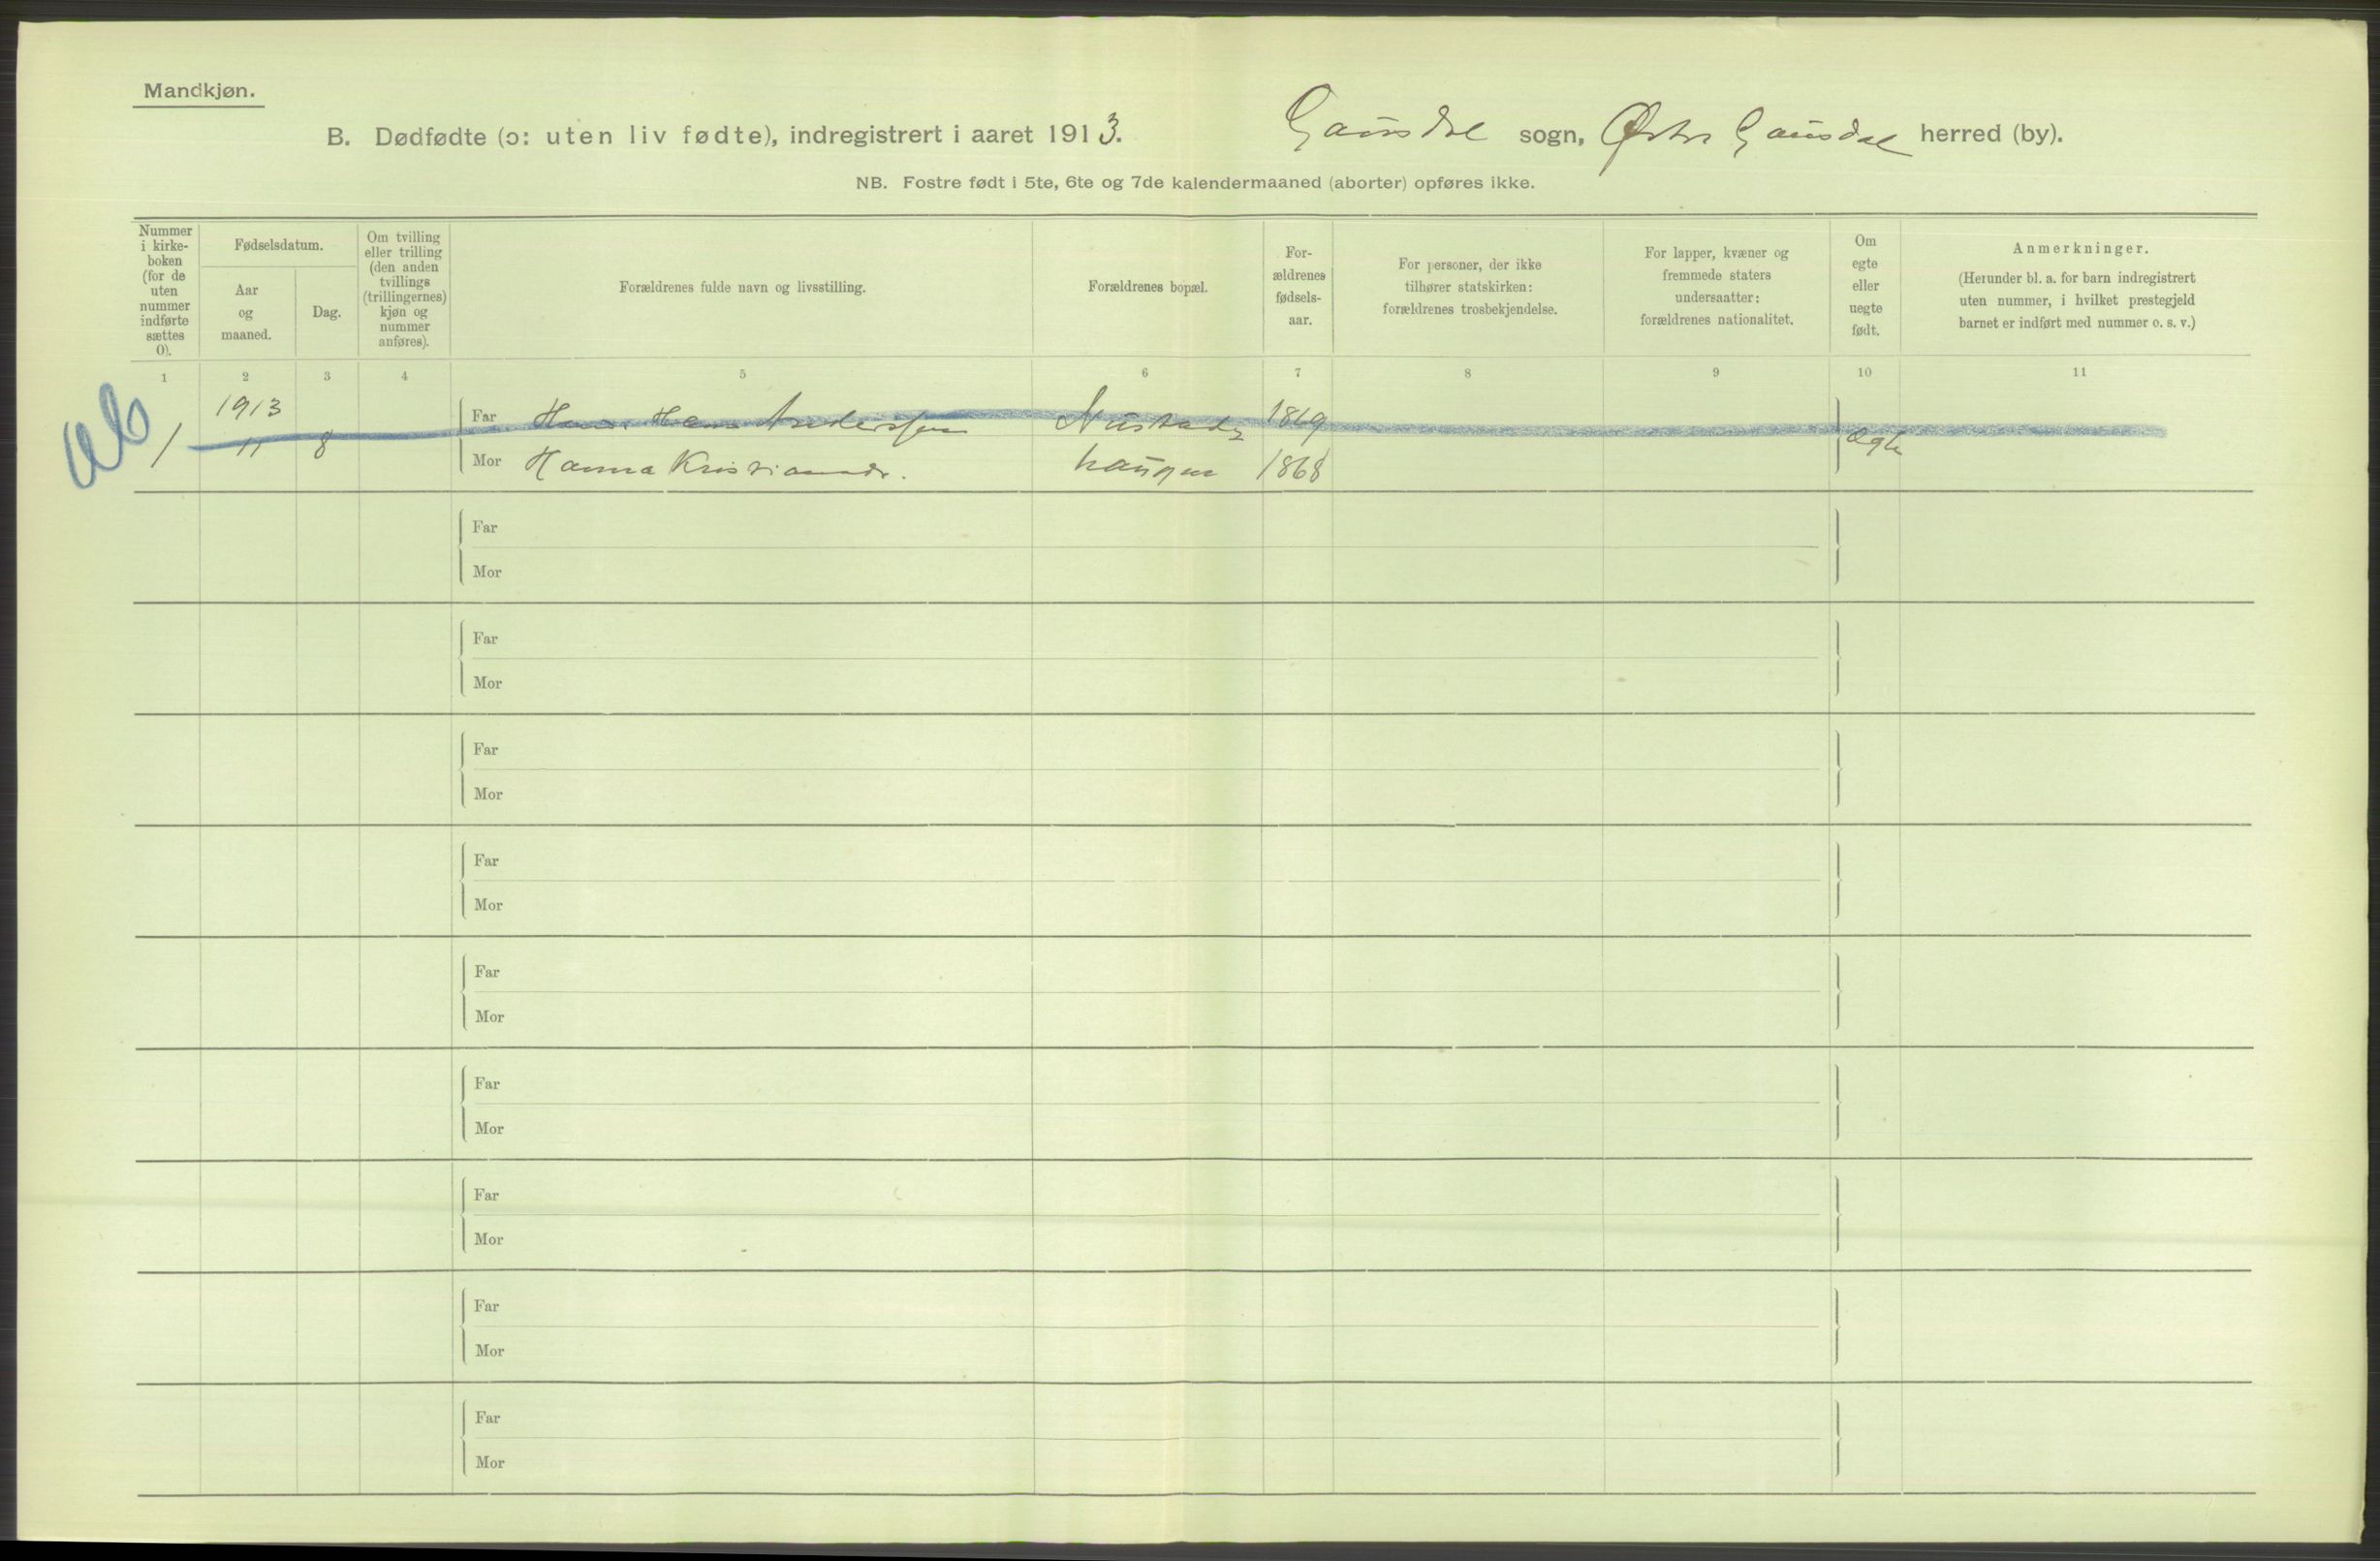 Mandkjøn.
B. Dødfødte (ɔ: uten liv fødte), indregistrert i aaret 1913. Gausdal sogn, Østre Gausdal herred (by).
NB. Fostre født i 5te, 6te og 7de kalendermaaned (aborter) opføres ikke.
Nummer
i kirke-
boken
(for de
uten
nummer
indførte
sættes
0).
Fødselsdatum.
Aar
og
maaned.
Dag.
Om tvilling
eller trilling
(den anden
tvillings
(trillingernes)
kjøn og
nummer
anføres).
Forældrenes fulde navn og livsstilling.
Forældrenes bopæl.
For-
ældrenes
fødsels-
aar.
For personer, der ikke
tilhører statskirken:
forældrenes trosbekjendelse.
For lapper, kvæner og
fremmede staters
undersaatter:
forældrenes nationalitet.
Om
egte
eller
uegte
født.
Anmerkninger.
(Herunder bl. a. for barn indregistrert
uten nummer, i hvilket prestegjeld
barnet er indført med nummer o. s. v.)
1 2 3 4 5 6 7 8 9 10 11
1913
1 11 8
Far Hans Anderssen 1869
Mor Hanna Kristiansdr. haugen 1868
Far
Mor
Far
Mor
Far
Mor
Far
Mor
Far
Mor
Far
Mor
Far
Mor
Far
Mor
Far
Mor